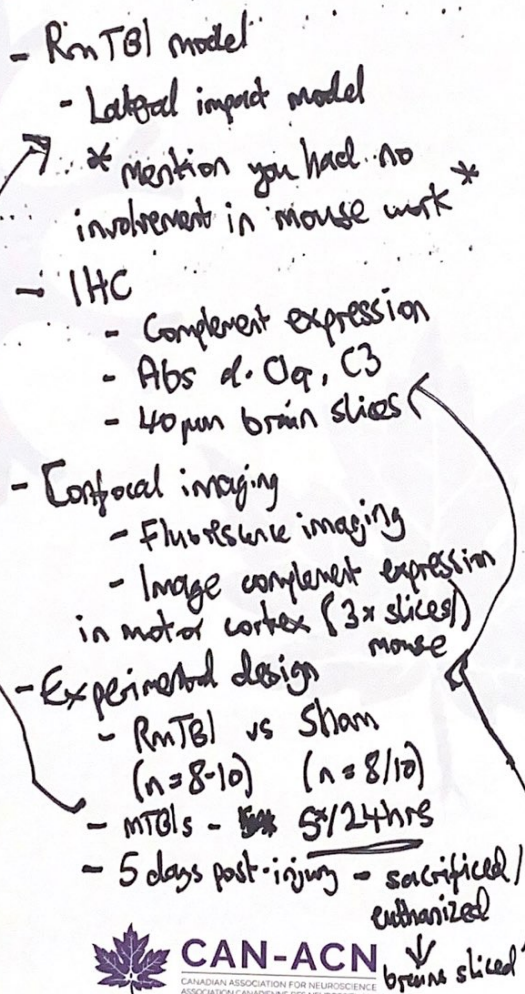 - RmTBI model
- Lateral impact model
* Mention you had no
involvement in mouse work *
- IHC
- Complement expression
- Abs α. C1q, C3
- 40 μm brain slices
- Confocal imaging
- Fluorescence imaging
- Image complement expression
in motor cortex (3x slices/
mouse)
- Experimental design
- RmTBI vs Sham
(n = 8-10) (n = 8/10)
- mTBIs - 5x/24hrs
- 5 days post-injury - sacrificed/
euthanized
brains sliced
CAN-ACN
CANADIAN ASSOCIATION FOR NEUROSCIENCE